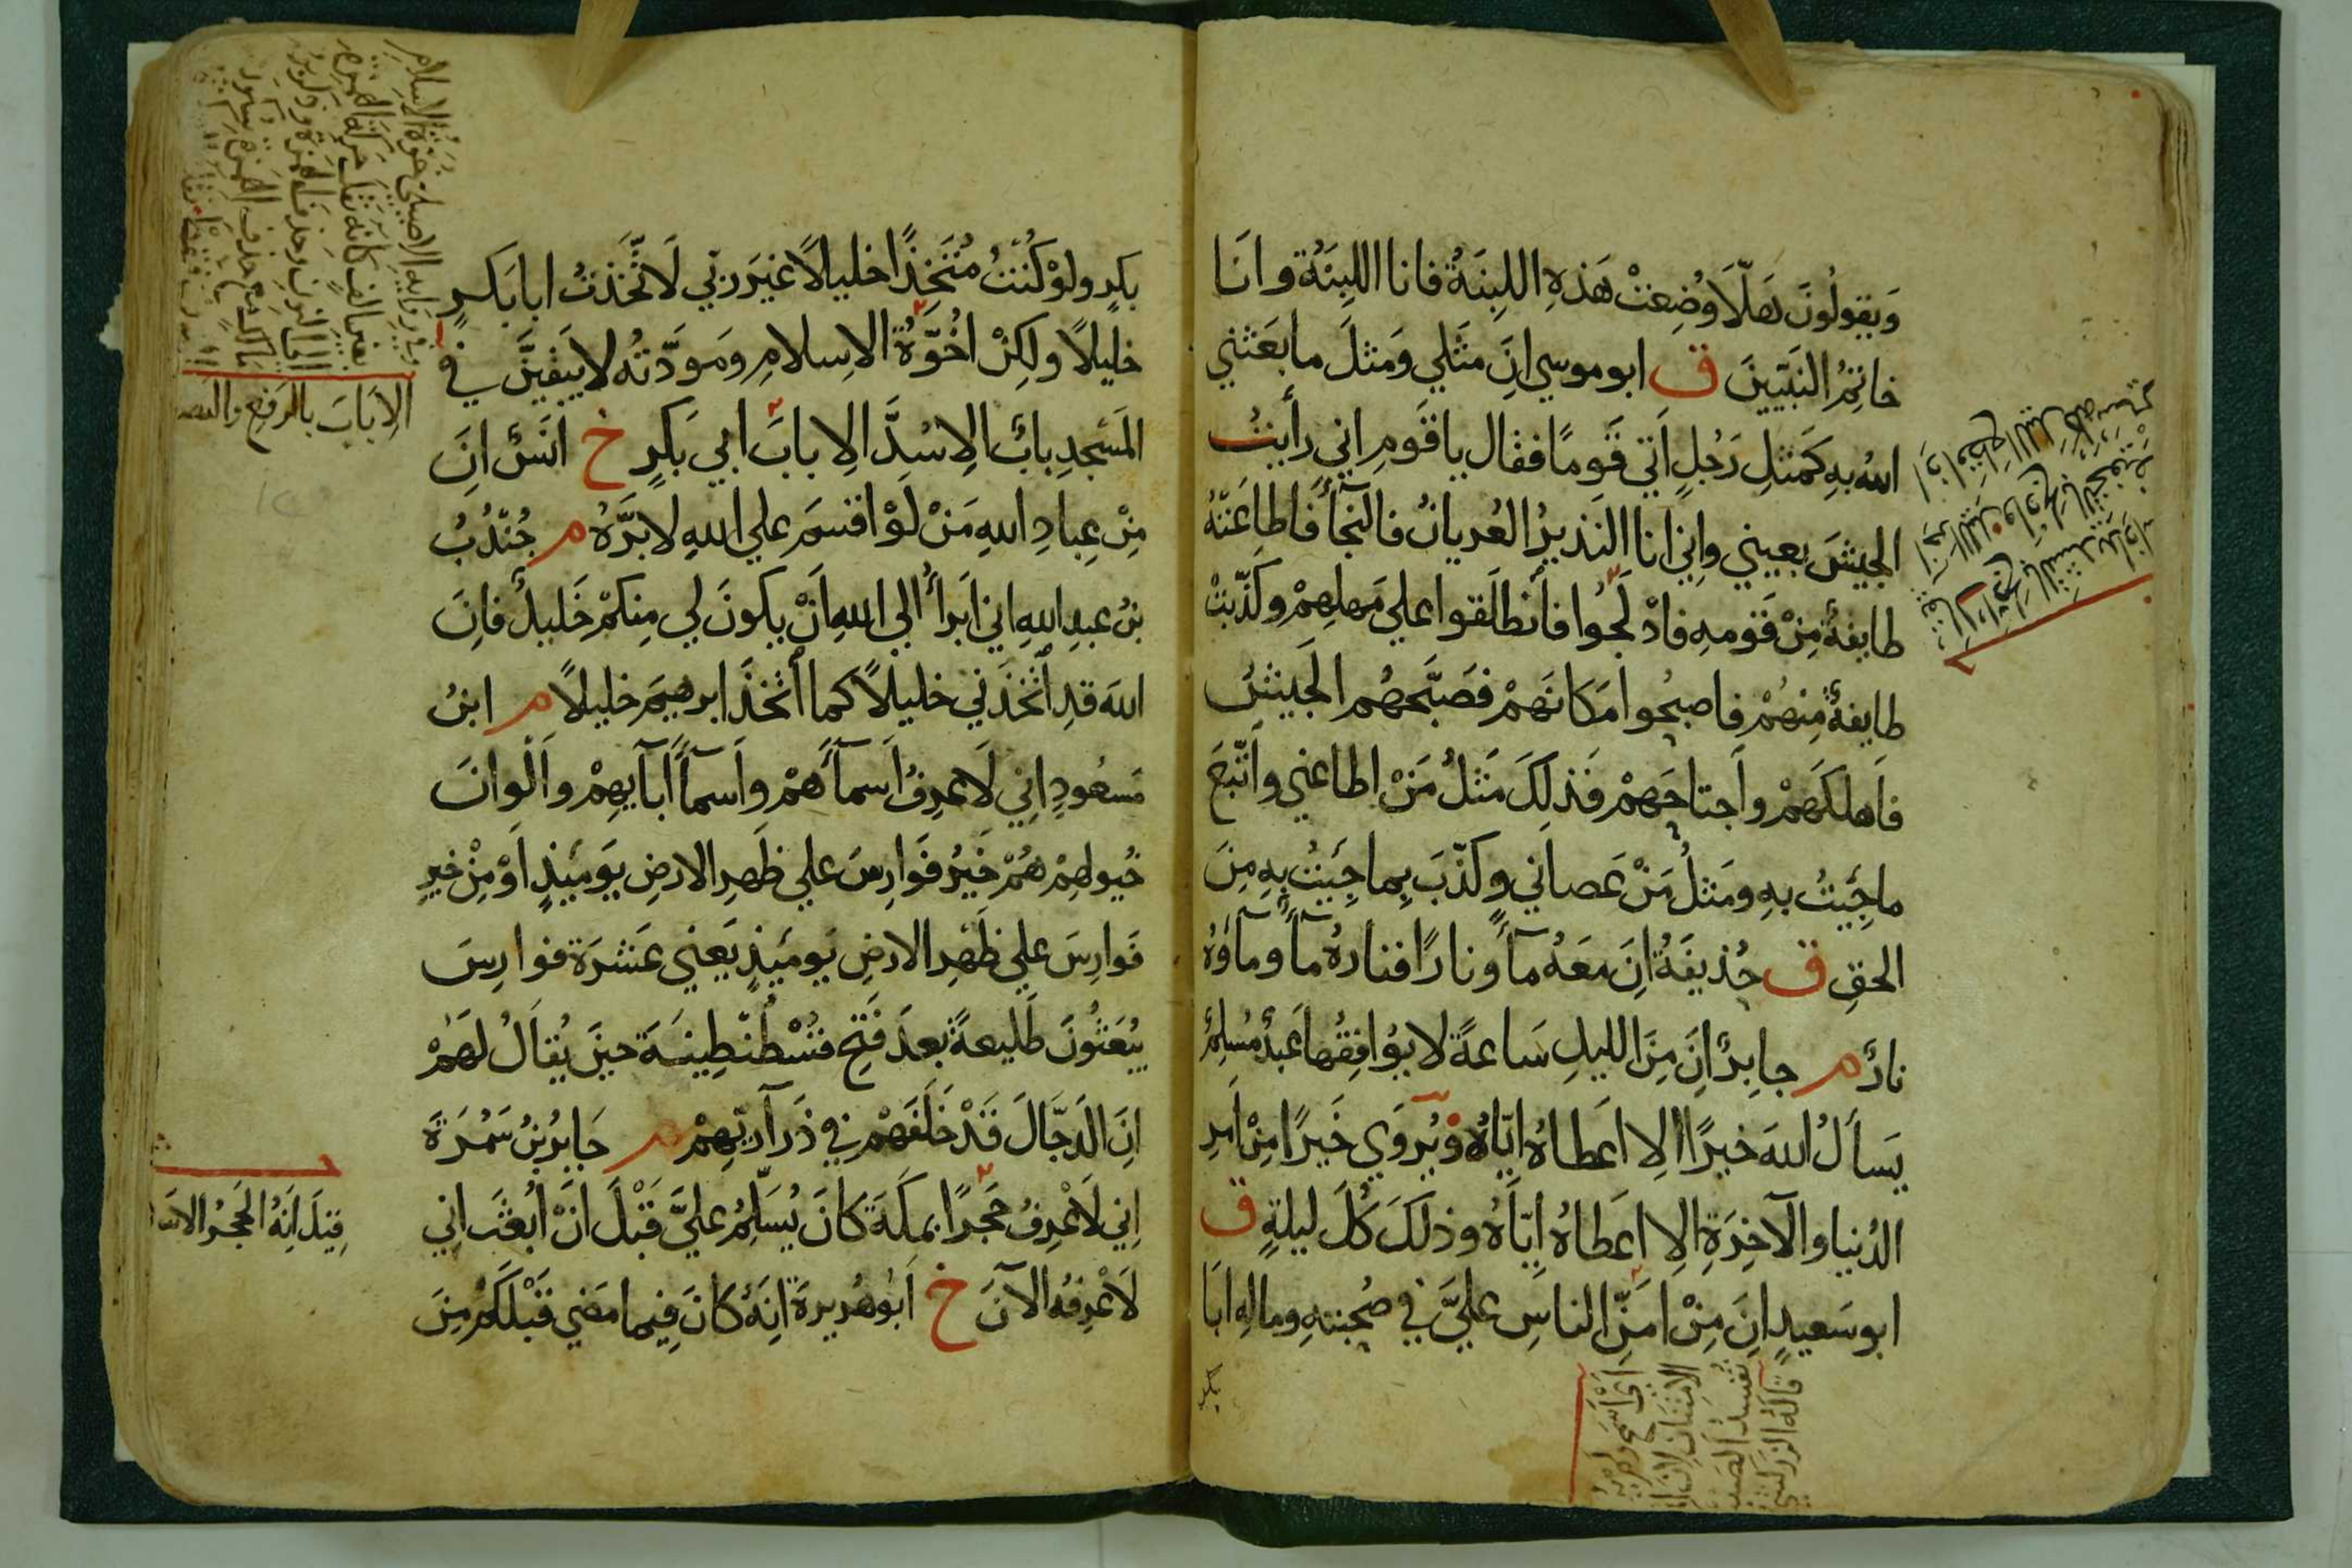 وَيقولُونَ هَلّا وُضِعَتْ هَذِهِ اللبِنَةُ فانا اللبِنَةُ وانَا
خاتِمُ النَبّيينَ ق ابو موسي انَّ مَثَلي وَمَثلَ ما بعَثني
اللهُ بِهِ كَمَثلِ رَجُلٍ اَتي قَومًا فقال يا قَومِ اني رأيتُ
الجيشَ بعيني وإني انا النَذيرُ العُريانُ فالنجآءَ فاطاعَتهُ
طايفةٌ مِنْ قَومِهِ فادْلَجُوا فانطلَقوا علي مَهلِهِمْ وكذّبتْ
طايفةٌ مِنهُمْ فاصبحُوا مَكانَهمْ فصَبَّحهُم الجَيشُ
فاَهلكَهمْ واَجتاحَهمْ فذلِكَ مَثلُ مَنْ اطاعني واَتّبعَ
ما جِيتُ بهِ ومَثلُ مَنْ عَصاني وكذّبَ بِما جِيتُ بِهِ مِنَ
الحقِ ق حُذيفَةُ انَ مَعَهُ مآءً ونارًا فنارهُ مآءٌ ومآؤهُ
نارٌ م جابِرٌ انَ مِنَ الليلِ سَاعةً لا يوُافِقُها عَبدٌ مُسلِمٌ
يَسأَلُ اللهَ خيرًا الا اَعطاهُ ايّاهُ ويُروَي خَيرًا مِنْ اَمرِ
الدُنيا والآخِرَةِ الا اعَطاهُ اِيّاهُ وذلكَ كُلَ ليلةٍ ق
ابو سَعيدٍ انَ مِنْ امَنِّ الناسِ عليَّ في صُحبتهِ ومالِهِ ابَا
بكر
بكرٍ ولوْ كُنتُ مُتخِذًا خليلاً غيَر ربّي لَاتّخَذتُ ابا بَكرٍ
خليلاً ولكِنْ اخُوّةُ الاِسلامِ ومَودّتُه لا يَبقَيَنَّ في
المَسجِدِ بابٌ الاِ سُدَّ الاِ بابَُ ابي بَكرٍ خ انَسٌ انَ
مِنْ عِبادِ اللهِ مَنْ لَوْ اقسَمَ علي اللهِ لابَرَّهُ م جُندُبُ
بنُ عبدِ اللهِ اني اَبرأُ الي اللهِ اَنْ يكونَ لي مِنكمْ خَليلٌ فانَ
اللهَ قدِ اتّخَذَني خليلاً كما اَتّخَذَ ابرهيمَ خليلاً م ابنُ
مَسعُودٍ اِنّي لَاعرِفُ اَسمآءَهمْ واَسمآءَ اَبآيِهِمْ واَلْوانَ
خيُولهِمْ هُمْ خَيرُ فَوارِسَ علي ظَهرِ الارضِ يَوميَذٍ اَوْ مِنْ خيرِ
فَوارِسَ علي ظَهرِ الارضِ يَوميَذٍ يَعني عَشرَة فوارِسَ
يُبعَثُونَ طَليعةً بعدَ فَتحِ قُسْطُنْطِينيَةَ حينَ يُقالُ لَهمْ
انَ الدَجّالَ قَدْ خَلَفَهمْ في ذَرآريّهِمْ م جَابِرُ بنُ سَمُرَةَ
اِني لَاعْرِفُ حَجرًا بمكَةَ كانَ يُسَلِّمُ عليَّ قَبْلَ انَْ اُبعَثَ اني
لَاعْرِفهُ الآنَ خ اَبوُ هُريرةَ انِهُ كانَ فِيما مَضي قَبْلَكُمْ مِنَ
الاِ بَابَ بالرَفعِ والنصب
قِيلَ اَنِهُ الحَجرُ الاسَود